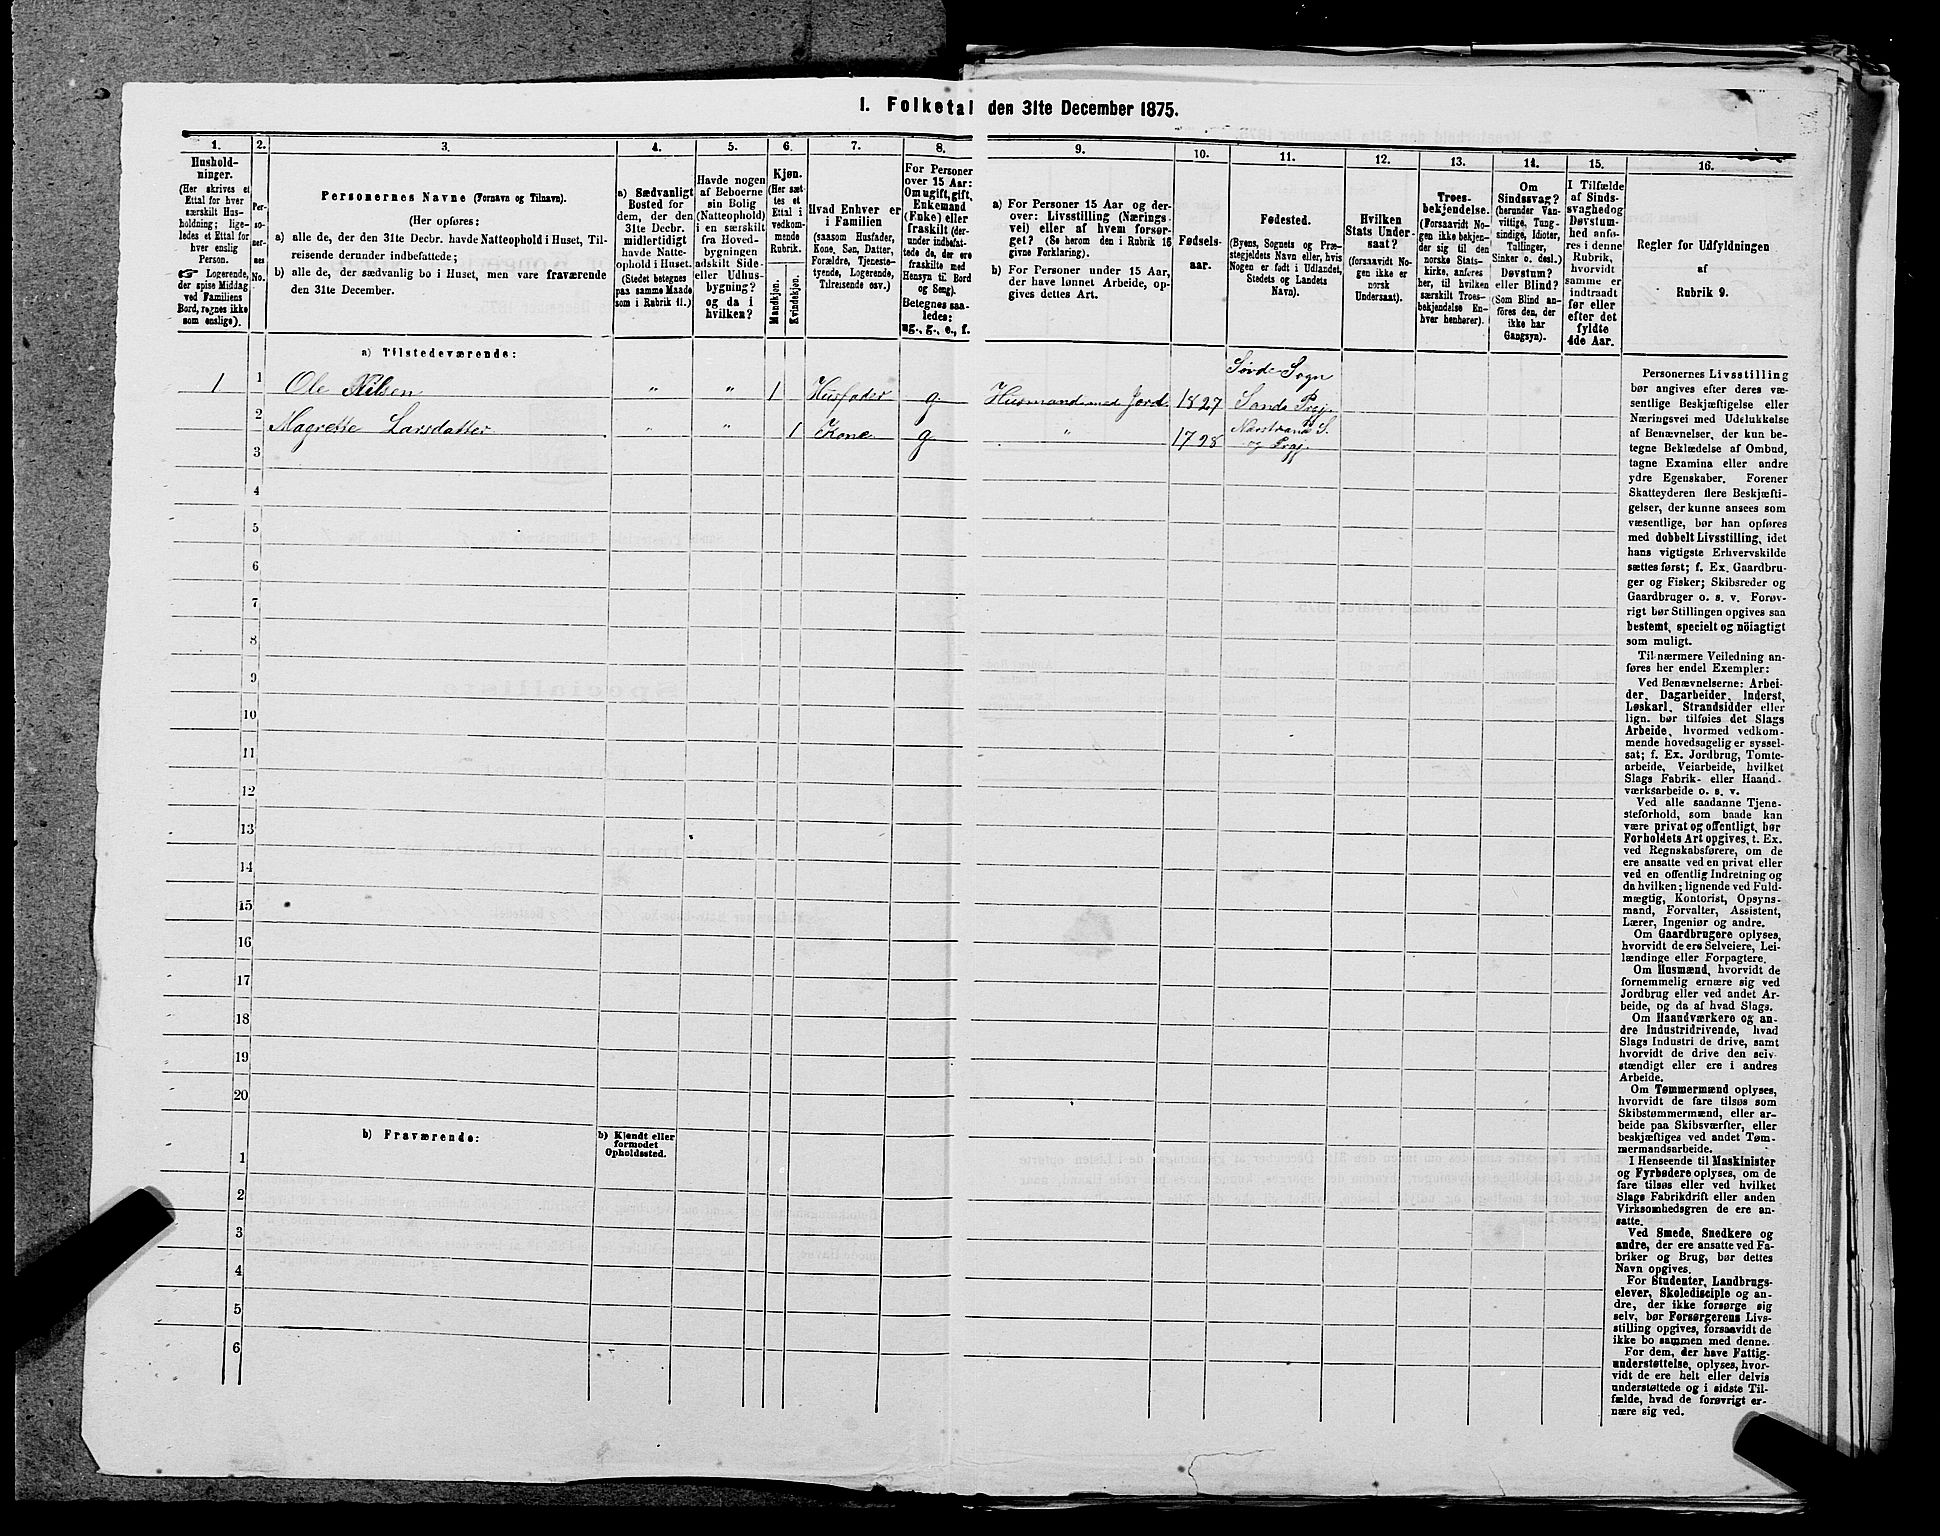 I. Folketal den 31te December 1875.
1. 2. 3. 4. 5. 6. 7. 8. 9. 10. 11. 12. 13. 14. 15. 16.
Hushold-
ninger.
(Her skrives et
Ettal for hver
særskilt Hus-
holdning; lige-
ledes et Ettal for
hver enslig
Person.
☞ Logerende,
der spise Middag
ved Familiens
Bord, regnes ikke
som enslige).
Per-
so-
ner-
nes
No.
Personernes Navne (Fornavn og Tilnavn).
(Her opføres:
a) alle de, der den 31te Decbr. havde Natteophold i Huset, Til-
reisende derunder indbefattede;
b) alle de, der sædvanlig bo i Huset, men vare fraværende
den 31te December.
a) Sædvanligt
Bosted for
dem, der den
31te Decbr.
midlertidigt
havde Natte-
ophold i Huset.
(Stedet betegnes
paa samme Maade
som i Rubrik 11.)
Havde nogen
af Beboerne
sin Bolig
(Natteophold)
i en særskilt
fra Hoved-
bygningen
adskilt Side-
eller Udhus-
bygning?
og da i
hvilken?
Kjøn.
(Her sæt-
tes et
Ettal i
vedkom-
mende
Rubrik.
Mandkjøn.
Kvindekjøn.
Hvad Enhver er
i Familien
(saasom Husfader,
Kone, Søn, Datter,
Forældre, Tjeneste-
tyende, Logerende,
Tilreisende osv.)
For Personer
over 15 Aar:
Om ugift, gift,
Enkemand
(Enke) eller
fraskilt (der-
under indbefat-
tede de, der ere
fraskilte med
Hensyn til Bord
og Seng).
Betegnes saa-
ledes:
ug., g., e., f.
a) For Personer 15 Aar og der-
over: Livsstilling (Nærings-
vei) eller af hvem forsør-
get? (Se herom den i Rubrik 16
givne Forklaring).
b) For Personer under 15 Aar,
der have lønnet Arbeide, op-
gives dettes Art.
Fødsels-
aar.
Fødested.
(Byens, Sognets og Præ-
stegjeldets Navn eller, hvis
Nogen er født i Udlandet,
Stedets og Landets
Navn).
Hvilken
Stats Under-
saat?
(forsaavidt No-
gen ikke er
norsk
Undersaat).
Troes-
bekjendelse.
(Forsaavidt No-
gen ikke bekjen-
der sig til den
norske Stats-
kirke, anføres
her, til hvilken
særskilt Troes-
bekjendelse En-
hver henhører).
Om
Sindssvag?
(herunder Van-
vittige, Tung-
sindige, Idioter,
Tullinger,
Sinker o. desl.)
Døvstum?
eller Blind?
(Som Blind an-
føres den, der
ikke har
Gangsyn).
I Tilfælde
af Sinds-
svaghed og
Døvstum-
hed anfø-
res i denne
Rubrik,
hvorvidt
samme er
indtraadt
før eller
efter det
fyldte
4de Aar.
Regler for Udfyldningen
af
Rubrik 9.
a) Tilstedeværende:
Søvde Sogn
1 1 Ole Nilsen " " 1 Husfader g. Husmand med Jord 1827 Sands Prgj.
2 Magrette Larsdatter " " 1 Kone g. " 1798 Nærstrand S.
og Prgj.
3
4
5
6
7
8
9
10
11
12
13
14
15
16
17
18
19
20
b) Fraværende:
b) Kjendt eller
formodet
Opholdssted.
1
2
3
4
5
6
Personernes Livsstilling
bør angives efter deres væ-
sentlige Beskjæftigelse eller
Næringsvei med Udelukkelse
af Benævnelser, der kun be-
tegne Beklædelse af Ombud,
tagne Examina eller andre
ydre Egenskaber. Forener
Skatteyderen flere Beskjæfti-
gelser, der kunne ansees som
væsentlige, bør han opføres
med dobbelt Livsstilling, idet
hans vigtigste Erhvervskilde
sættes først; f. Ex. Gaardbru-
ger og Fisker; Skibsreder og
Gaardbruger o. s. v. Forøv-
rigt bør Stillingen opgives saa
bestemt, specielt og nöiagtigt
som muligt.
Til nærmere Veiledning an-
føres her endel Exempler:
Ved Benævnelserne: Arbei-
der, Dagarbeider, Inderst,
Løskarl, Strandsidder eller
lign. bør tilføies det Slags
Arbeide, hvormed vedkom-
mende hovedsagelig er syssel-
sat; f. Ex. Jordbrug, Tomte-
arbeide, Veiarbeide, hvilket
Slags Fabrik- eller Haand-
værksarbeide o. s. v.
Ved alle saadanne Tjene-
steforhold, som baade kan
være privat og offentligt, bør
Forholdets Art opgives, t. Ex.
ved Regnskabsførere, om de
ere ansatte ved en privat eller
ved en offentlig Indretning og
da hvilken; lignende ved Fuld-
mægtig, Kontorist, Opsyns-
mand, Forvalter, Assistent,
Lærer, Ingeniør og andre.
Om Gaardbrugere oplyses,
hvorvidt de ere Selveiere, Lei-
lændinge eller Forpagtere.
Om Husmænd, hvorvidt de
fornemmelig ernære sig ved
Jordbrug eller ved andet Ar-
beide, og da af hvad Slags.
Om Haandværkere og an-
dre Industridrivende, hvad
Slags Industri de drive, samt
hvorvidt de drive den selv-
stændigt eller ere i andres
Arbeide.
Om Tømmermænd oplyses,
hvorvidt de fare tilsøs som
Skibstømmermænd, eller ar-
beide paa Skibsværfter, eller
beskjæftiges ved andet Tøm-
mermandsarbeide.
I Henseende til Maskinister
og Fyrbødere oplyses, om de
fare tilsøs eller ved hvilket
Slags Fabrikdrift eller anden
Virksomhedsgren de ere an-
satte.
Ved Smede, Snedkere og
andre, der ere ansatte ved Fa-
briker og Brug, bør dettes
Navn opgives.
For Studenter, Landbrugs-
elever, Skoledisciple og an-
dre, der ikke forsørge sig
selv, bør Forsørgerens Livs-
stilling opgives, forsaavidt de
ikke bo sammen med denne.
For dem, der have Fattig-
understøttelse, oplyses, hvor-
vidt de ere helt eller delvis
understøttede og i sidste Til-
fælde, hvad de forøvrigt er-
nære sig ved.